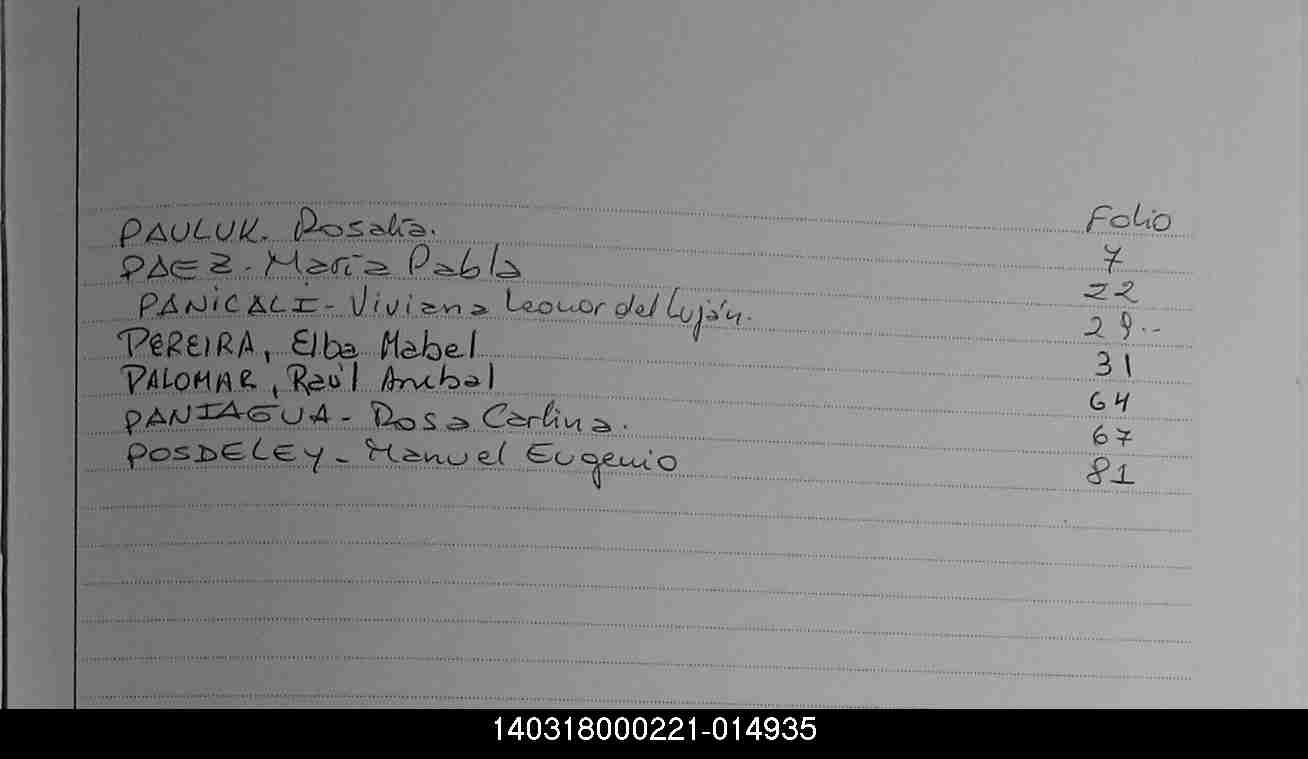 Folio
PAULUK. Rosalía. 7
PAEZ. María Pabla 22
PANICALI - Viviana Leonor del Luján. 29..
PEREIRA, Elba Mabel 31
PALOMAR, Raúl Anibal 64
PANIAGUA - Rosa Carlina. 67
POSDELEY - Manuel Eugenio 81
140318000221-014935